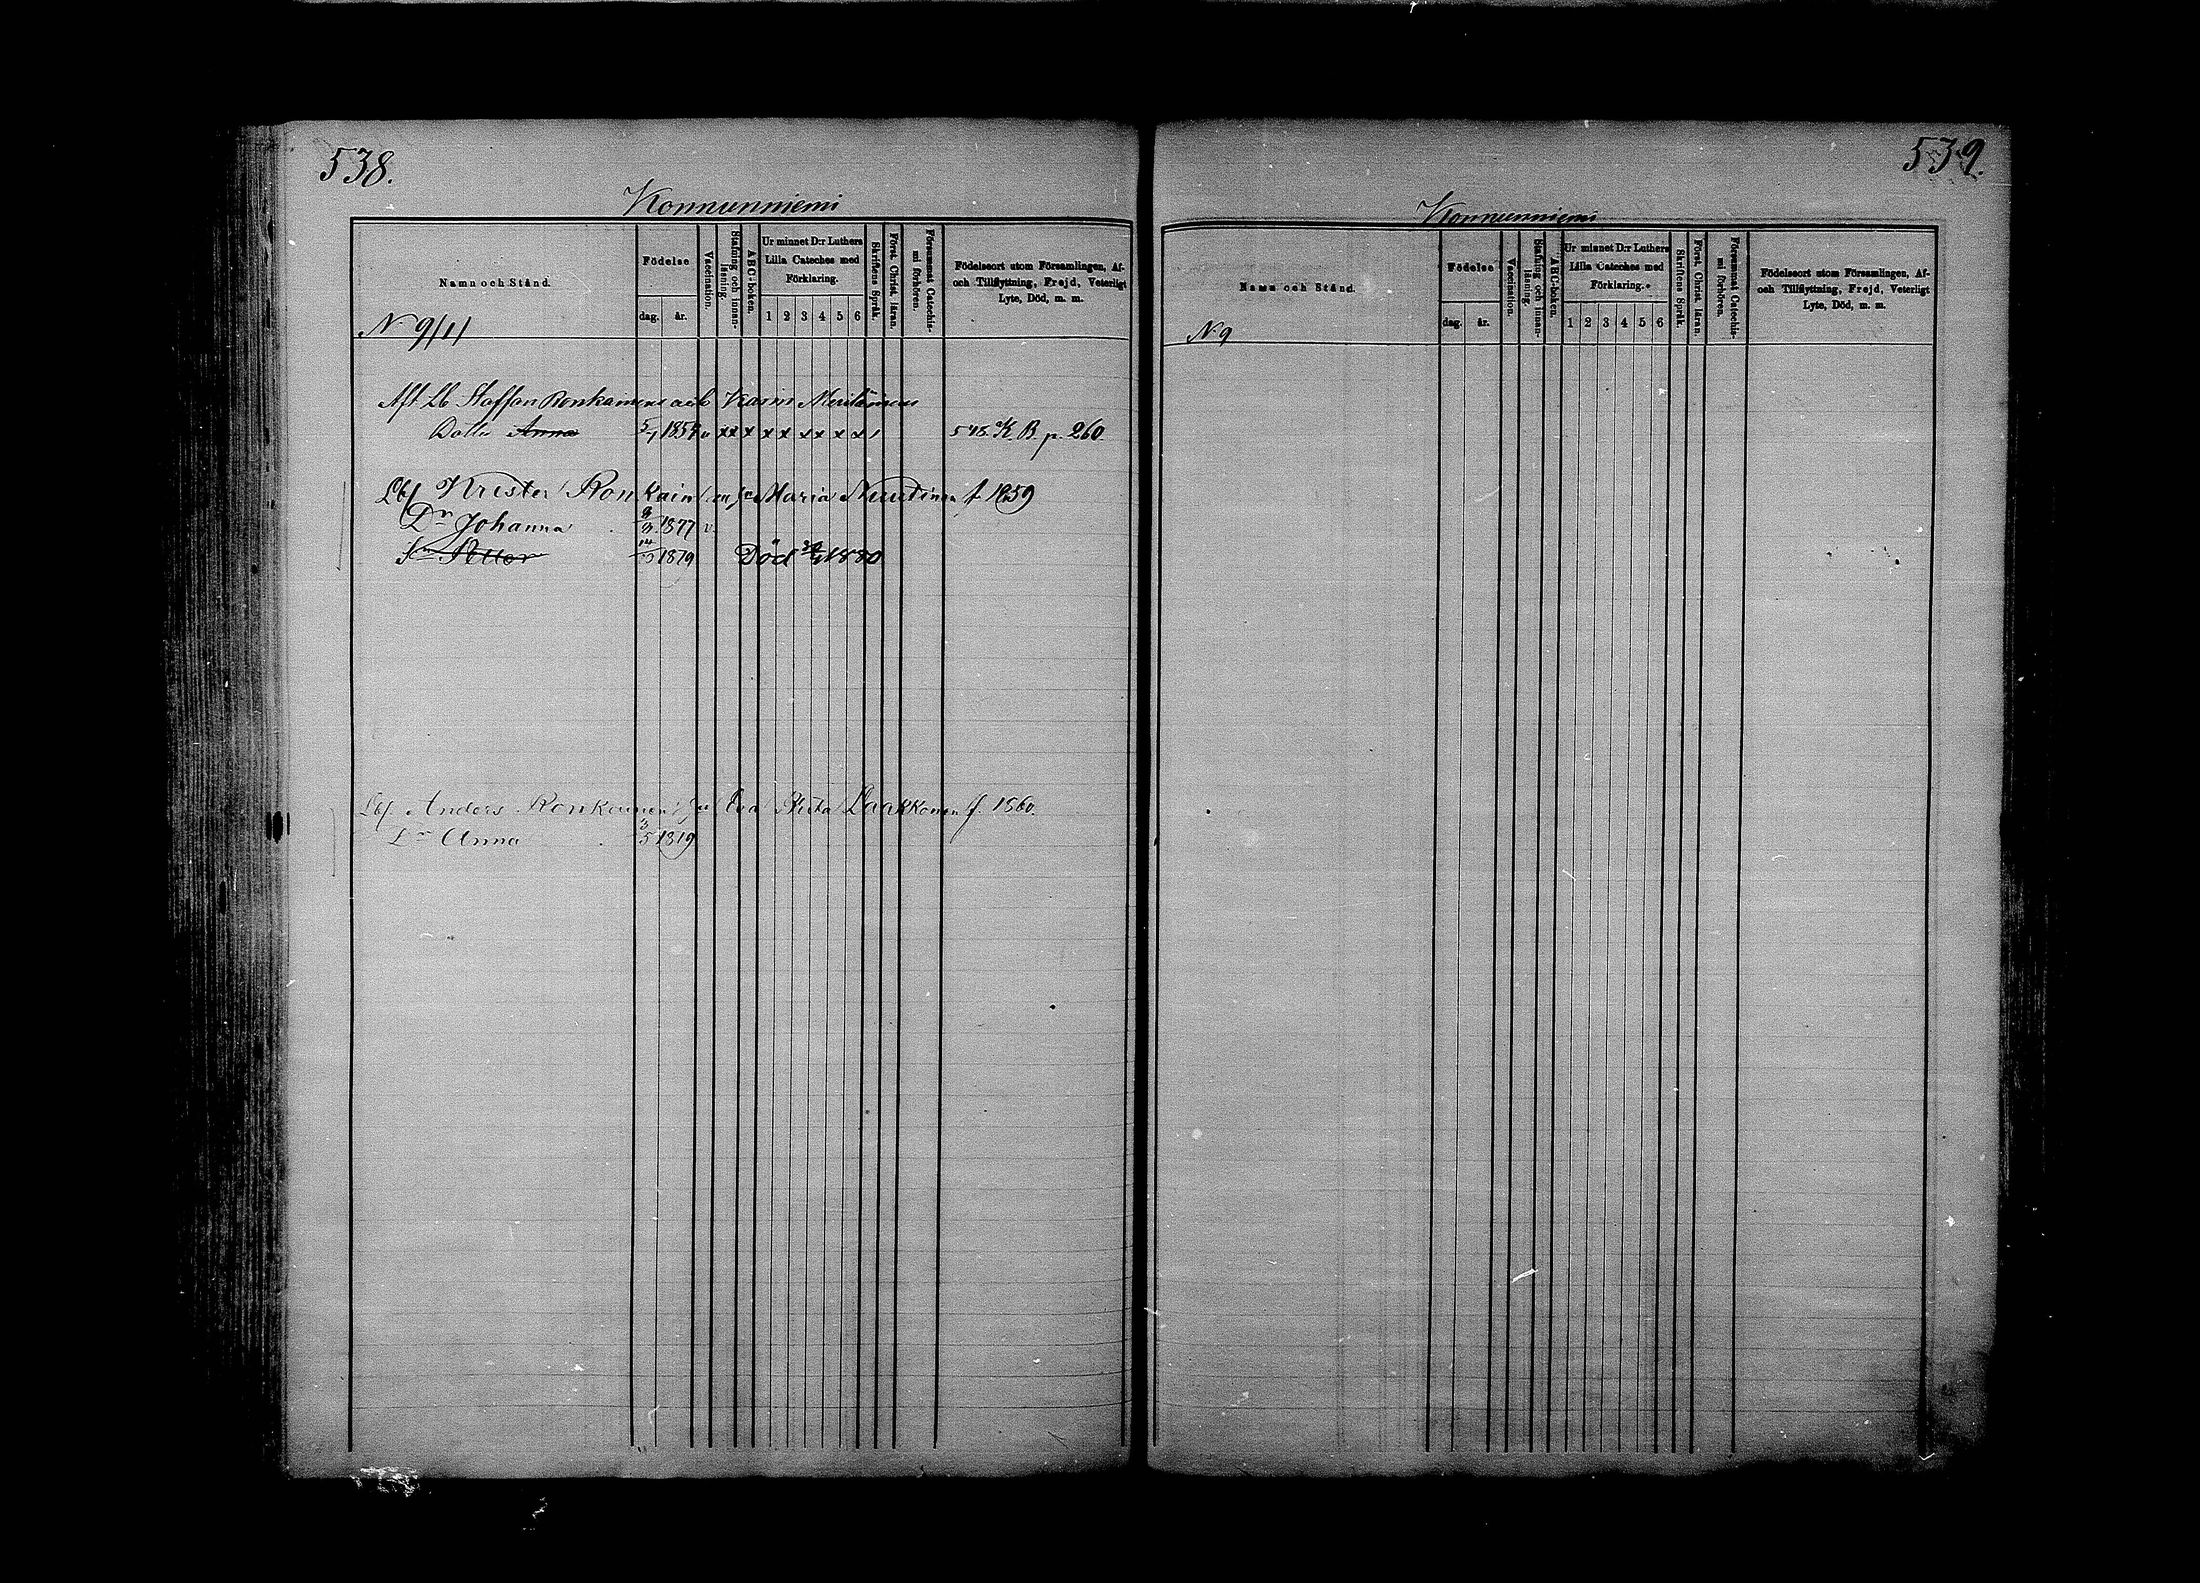 538.
Konnunniemi
Namn och Stånd.
Födelse
dag. år.
Vaccination.
Stafning och innan-läsning.
ABC-boken.
Ur minnet D:r Luthers
Lilla Cateches med
Förklaring.
1 2 3 4 5 6
Skriftens Språk.
Först. Christ. läran.
Försummat Catechis-
mi förhören.
Födelseort utom Församlingen, Af-
och Tillflyttning, Frejd, Veterligt
Lyte, Död, m. m.
N 9/1/
Aft Lb Staffan Ronkainens och Karin
Dotter Anna 5/1 1854 v xx x x x x x x x / K. B. p. 260.
Lbf Krister Ronkainen Maria Nuutinen f. 1859
Dr Johanna 1877 v.
Sn Petter 1879 Död 1880
Lbf Anders Ronkainen Eva Laakkonen f. 1860.
Dr Anna 1819
539.
Konnunniemi
Namn och Stånd.
Födelse
dag. år.
Vaccination.
Stafning och innan-läsning.
ABC-boken.
Ur minnet D:r Luthers
Lilla Cateches med
Förklaring.
1 2 3 4 5 6
Skriftens Språk.
Först. Christ. läran.
Försummat Catechis-
mi förhören.
Födelseort utom Församlingen, Af-
och Tillflyttning, Frejd, Veterligt
Lyte, Död, m. m.
N 9